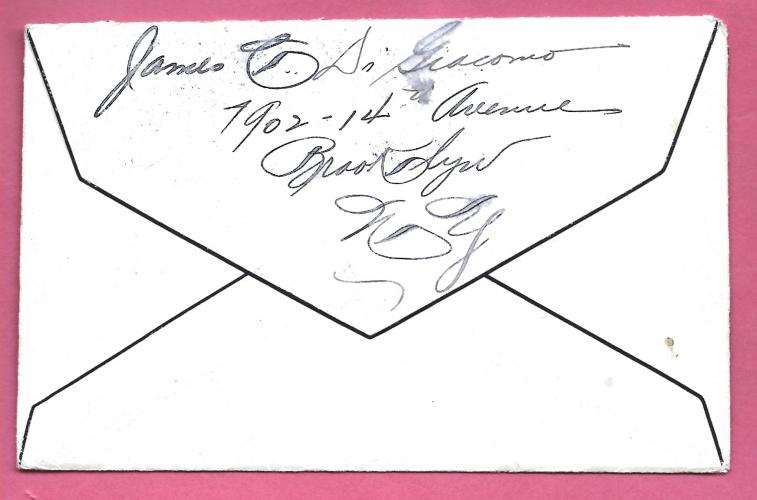 James Di Giacomo
7902 - 14th Avenue
Brooklyn
N Y